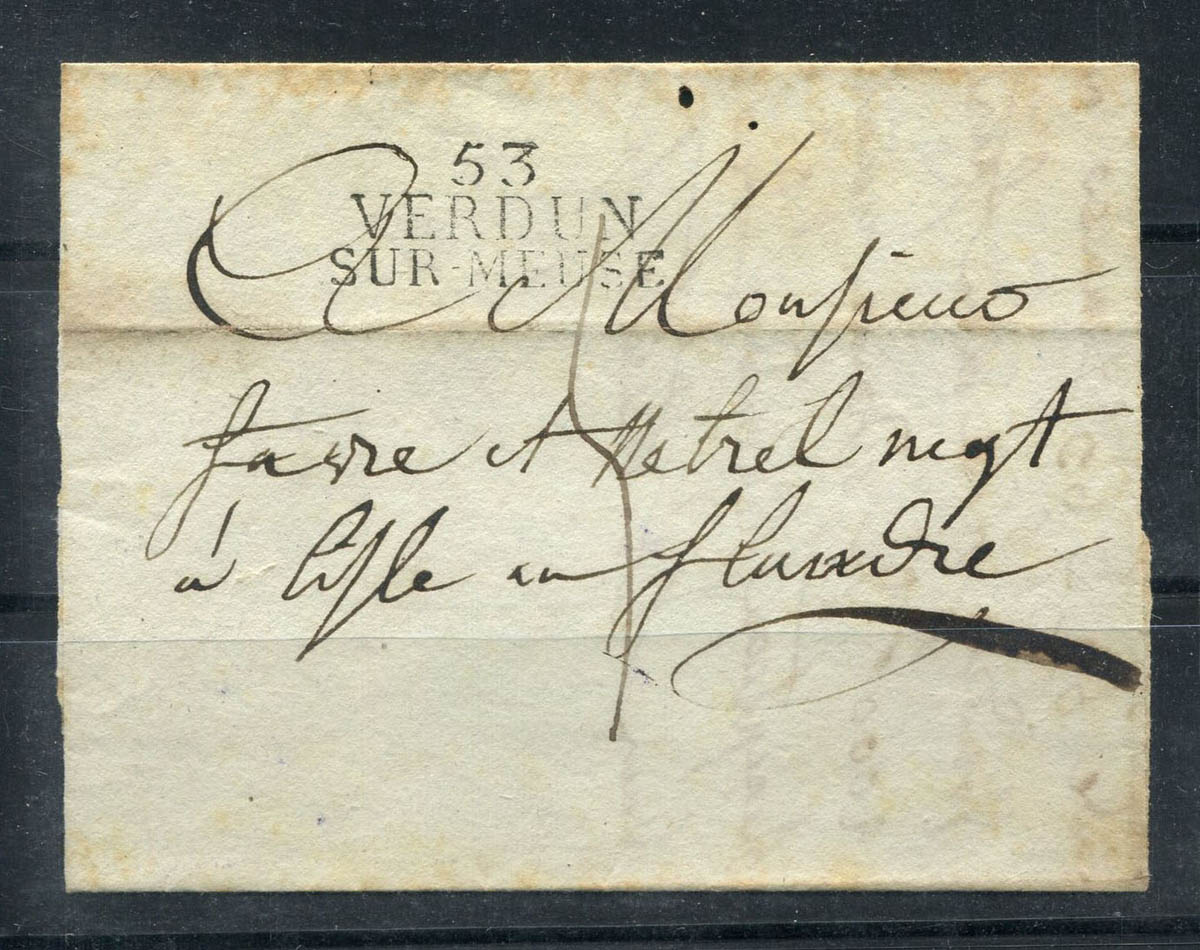 53
VERDUN
SUR-MEUSE
A Monsieur
favre et negt
à lisle en flandre